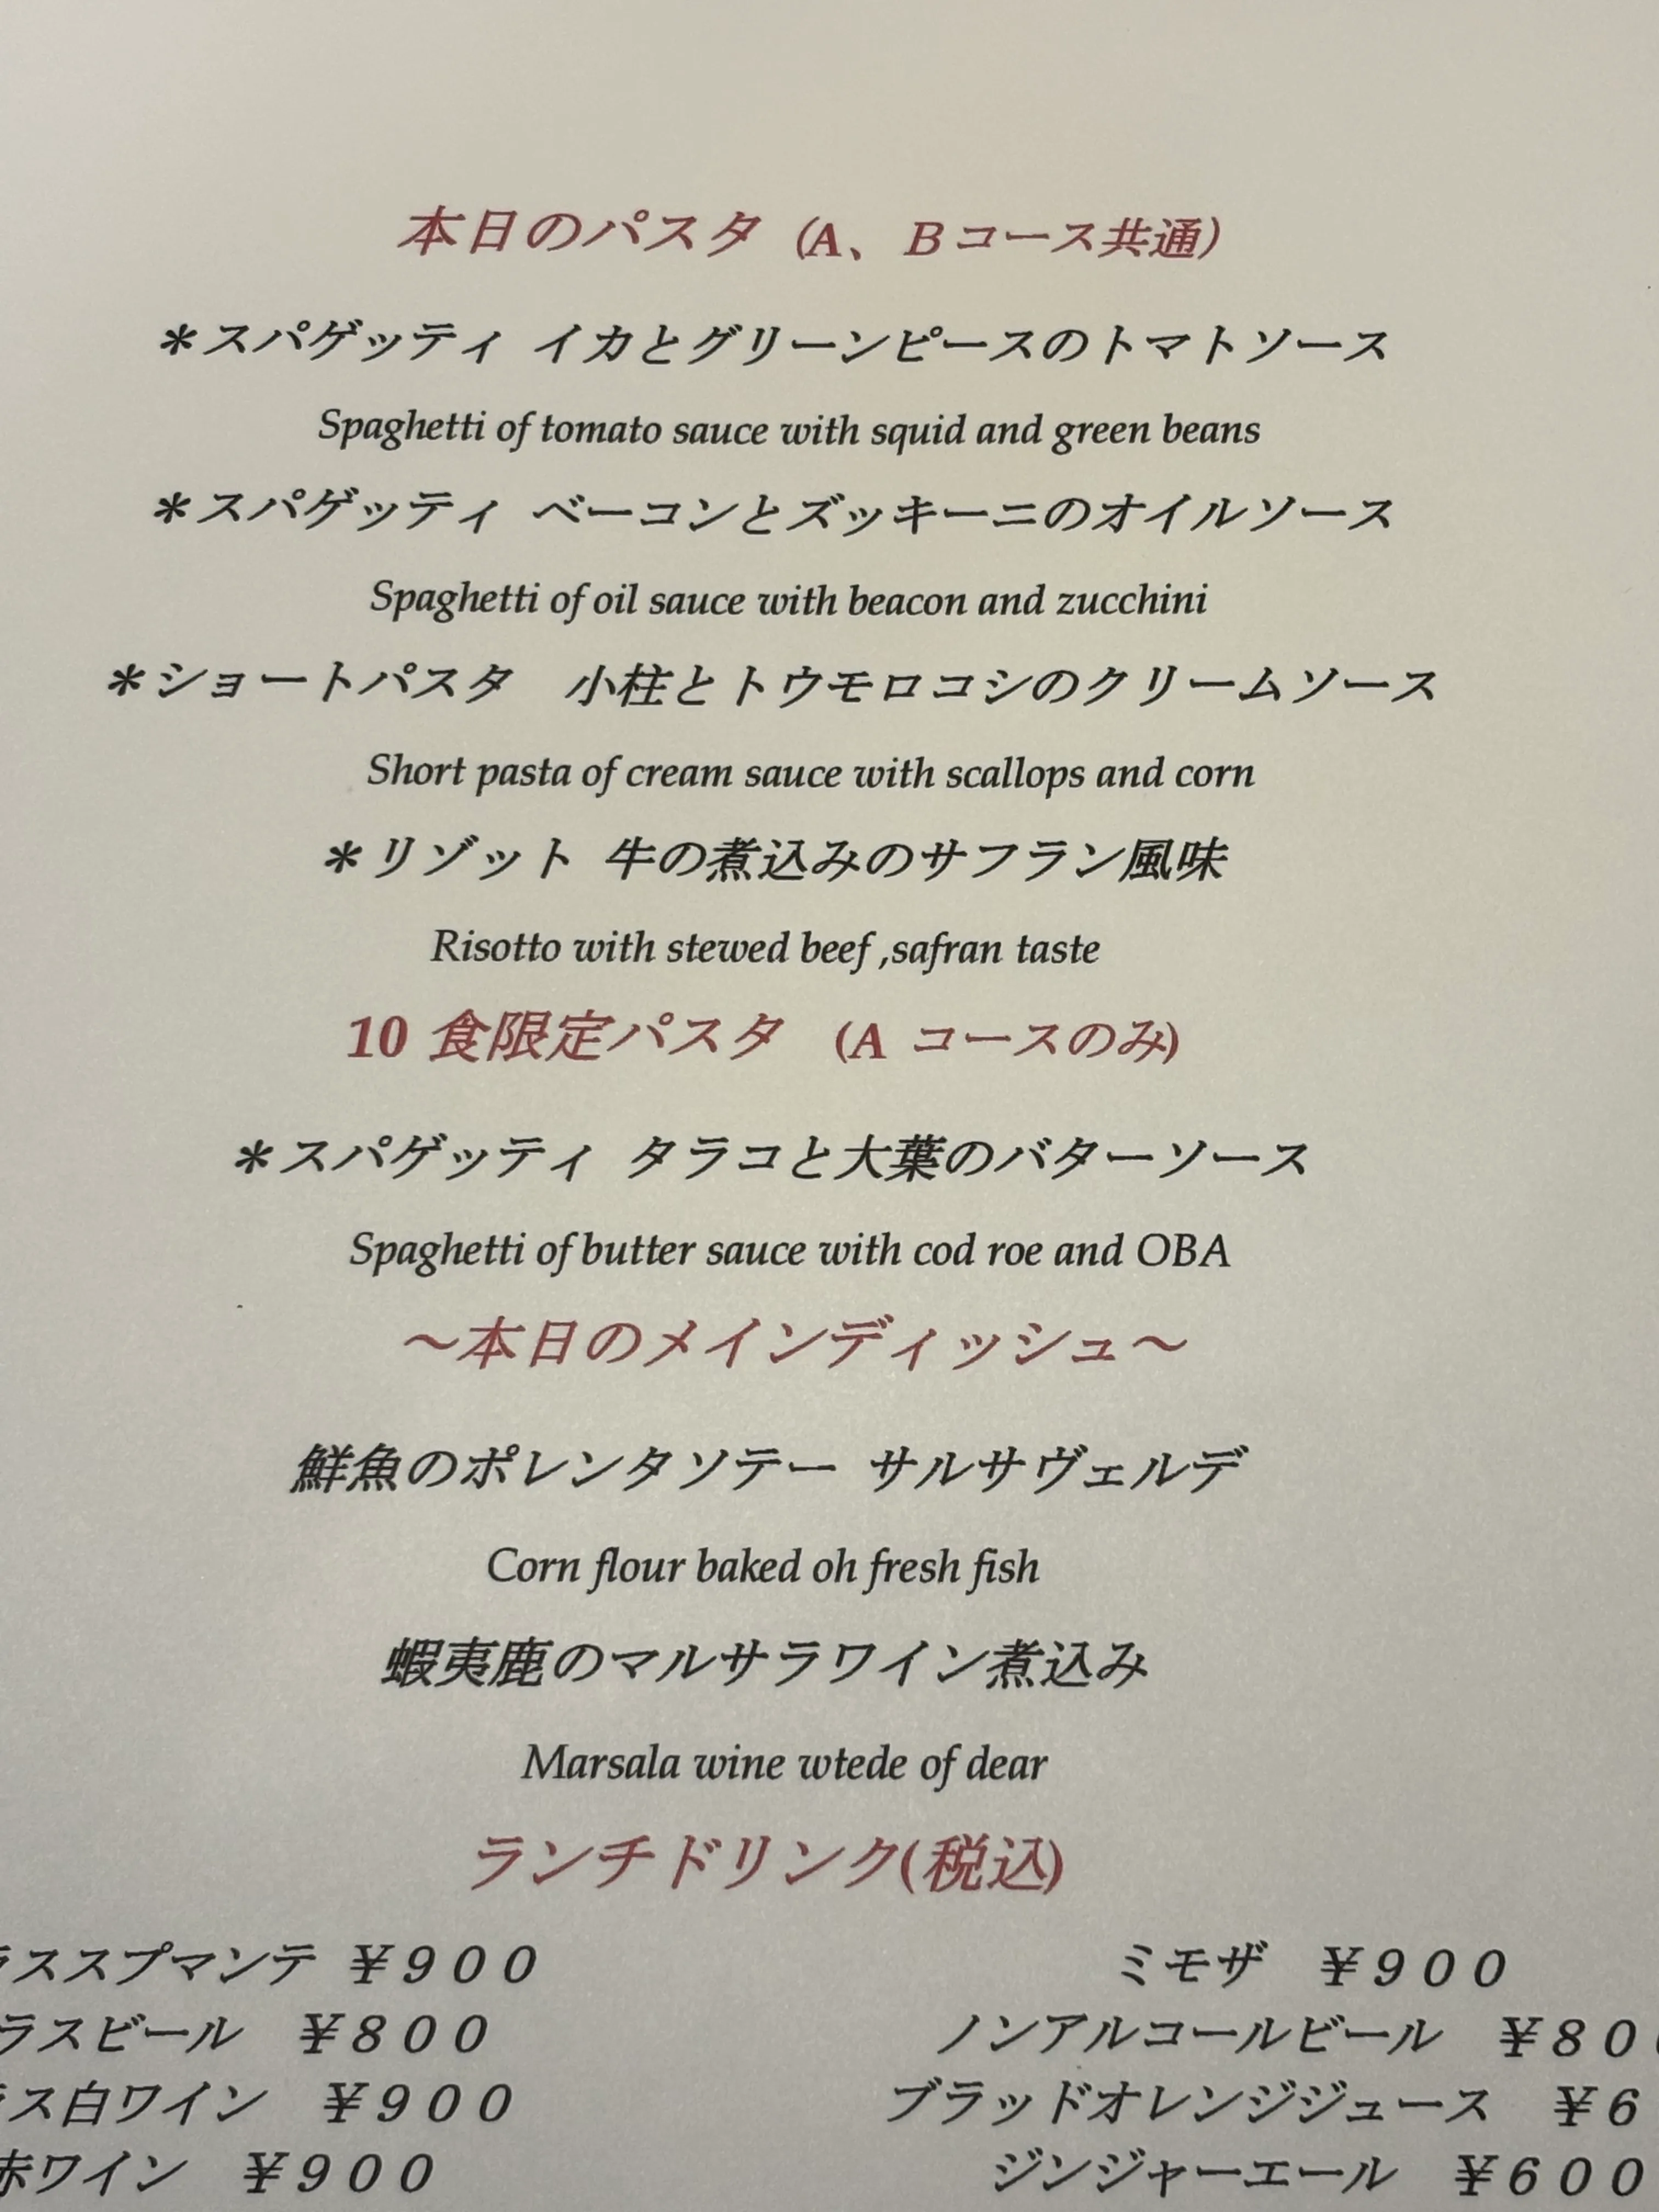 本日のパスタ (A、Bコース共通)
＊スパゲッティ イカとグリーンピースのトマトソース
Spaghetti of tomato sauce with squid and green beans
＊スパゲッティ ベーコンとズッキーニのオイルソース
Spaghetti of oil sauce with beacon and zucchini
＊ショートパスタ　小柱とトウモロコシのクリームソース
Short pasta of cream sauce with scallops and corn
＊リゾット 牛の煮込みのサフラン風味
Risotto with stewed beef ,safran taste
10 食限定パスタ　(A コースのみ)
＊スパゲッティ タラコと大葉のバターソース
Spaghetti of butter sauce with cod roe and OBA
～本日のメインディッシュ～
鮮魚のポレンタソテー サルサヴェルデ
Corn flour baked oh fresh fish
蝦夷鹿のマルサラワイン煮込み
Marsala wine wtede of dear
ランチドリンク(税込)
ラススプマンテ ￥９００　ミモザ　￥９００
ラスビール　￥８００　ノンアルコールビール　￥８０
ス白ワイン　￥９００　ブラッドオレンジジュース　￥６
赤ワイン　￥９００　ジンジャーエール　￥６００